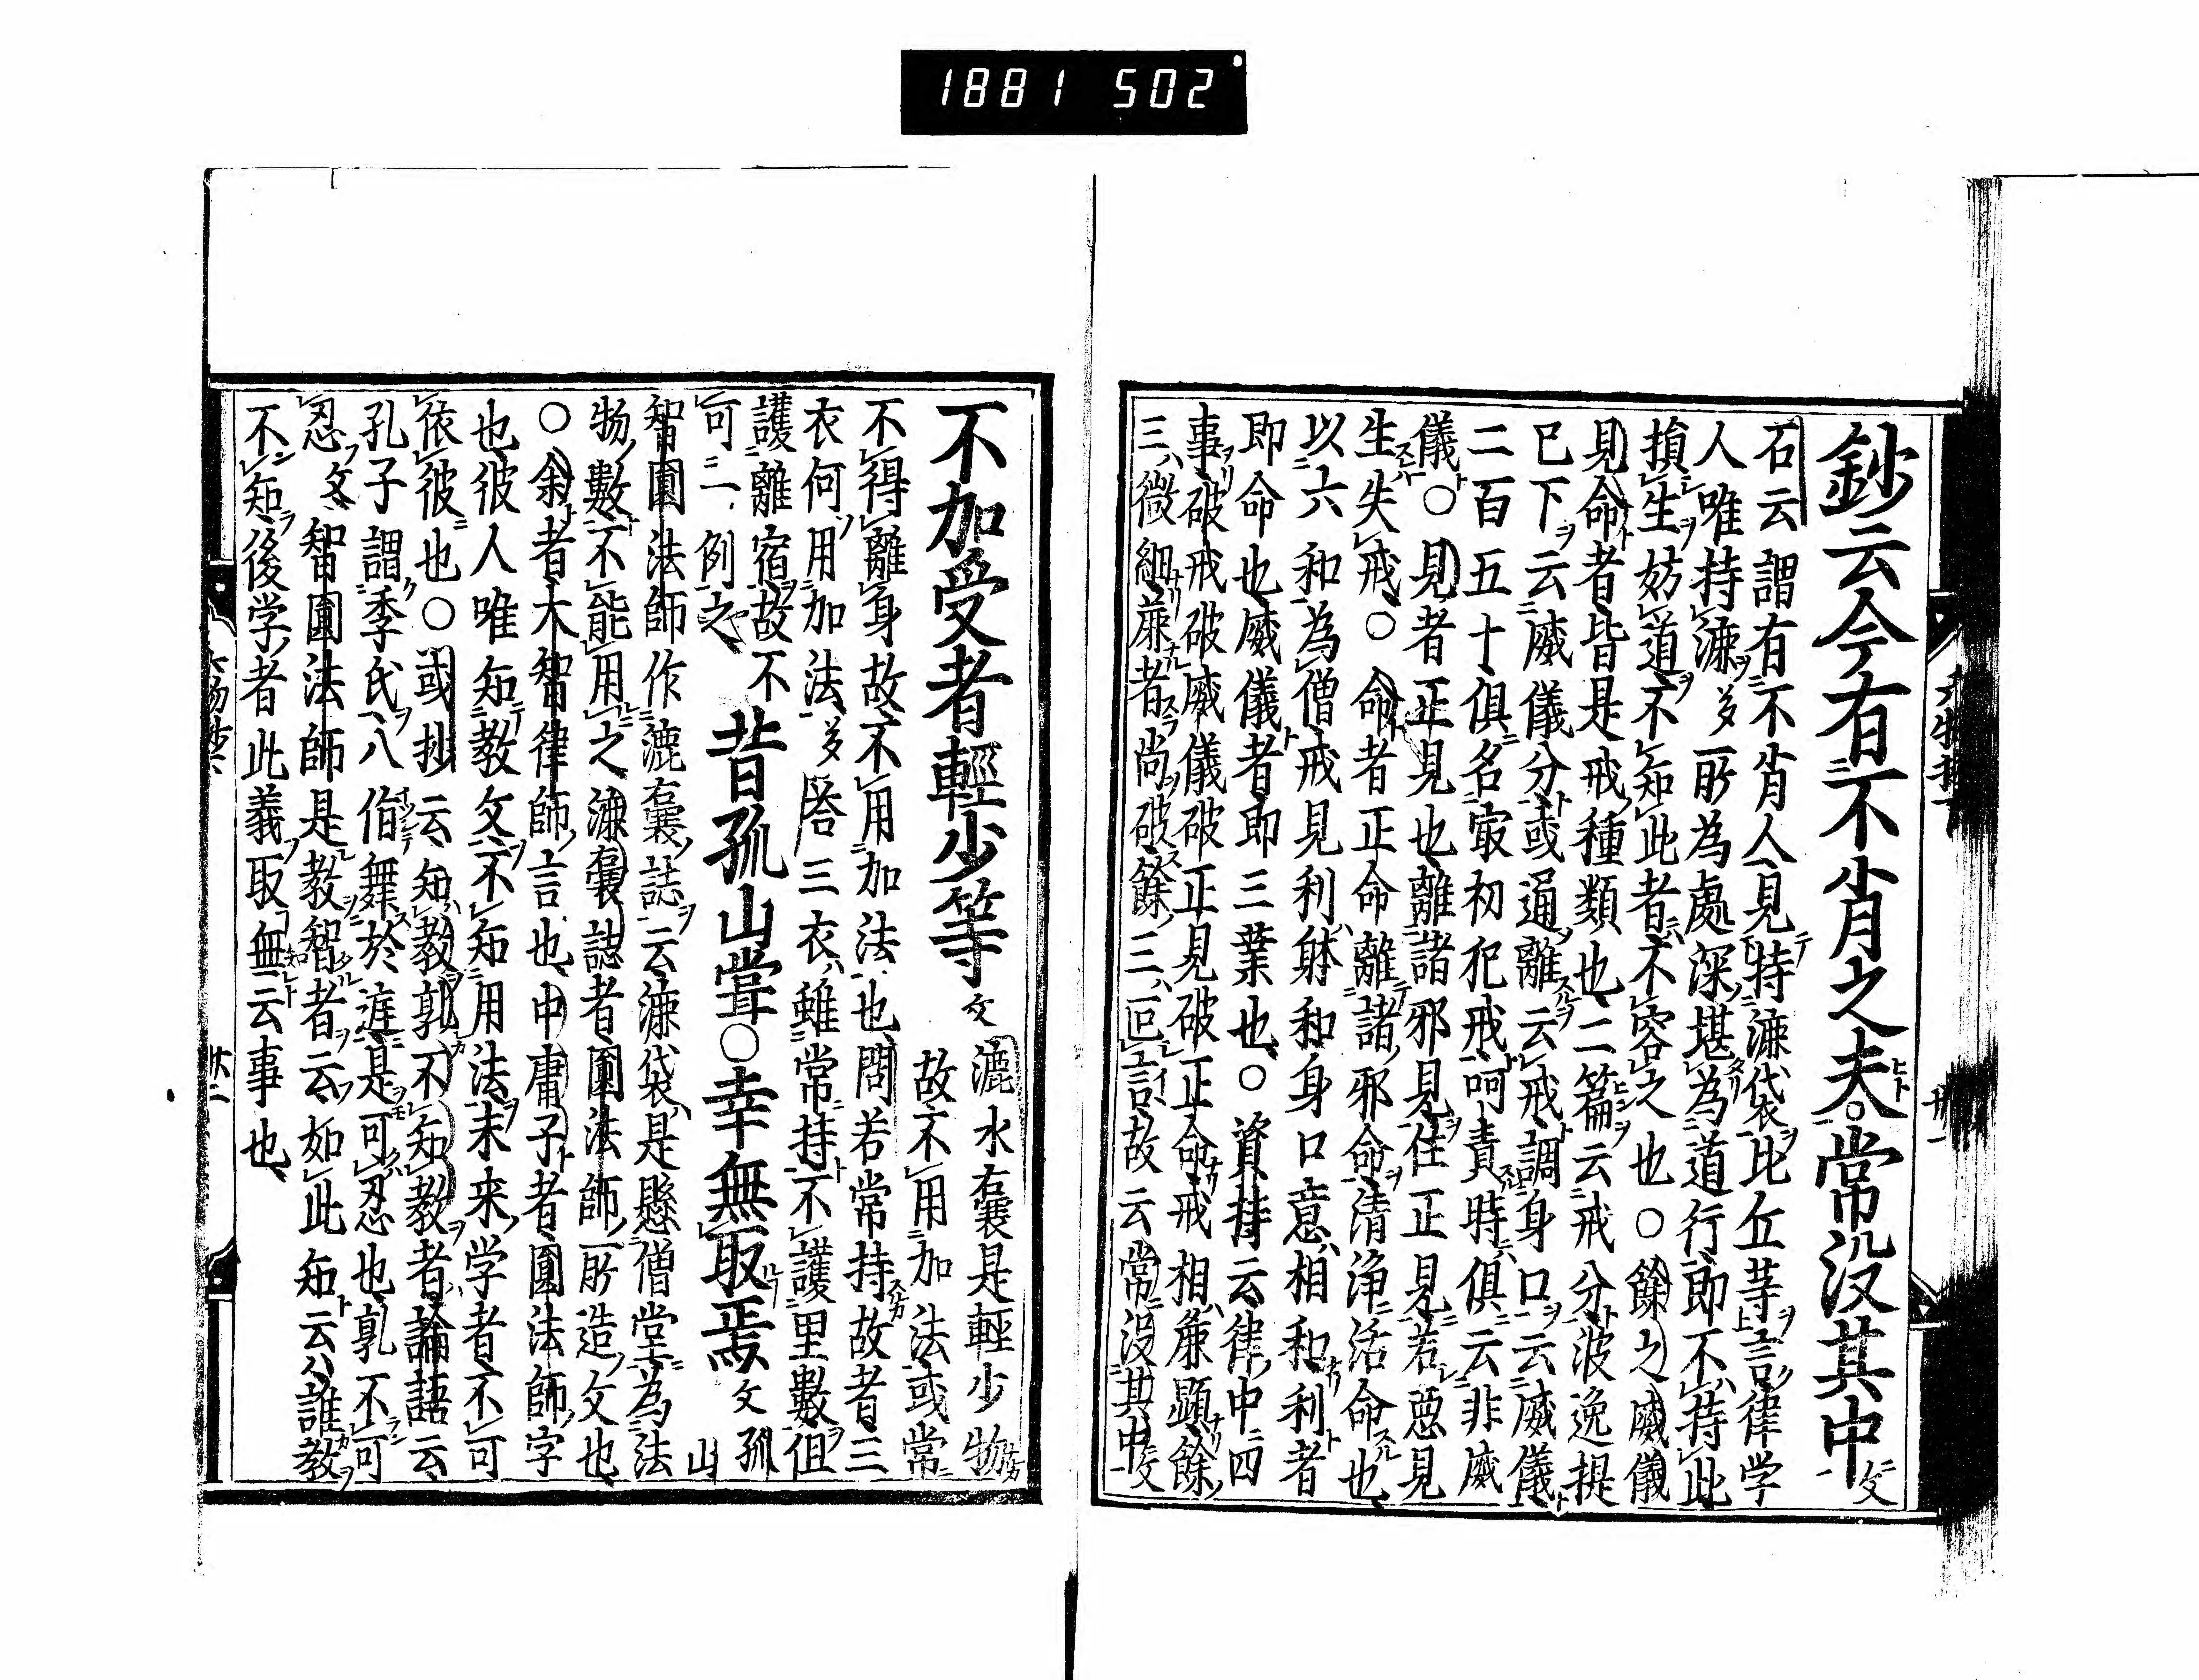 1881 502
鈔云今有不肖之夫○常没其中文
石云謂有不肖人見特漉袋比丘等言律学
人唯持漉多一所為處深堪為道行即不持此
損生妨道不知此者不容之也○餘之威儀
見命者皆是戒種類也二篇云戒分波逸提
已下云威儀分或通離云戒調身口云威儀
二百五十俱名寂初犯戒呵責時俱云非威
儀○見者正見也離諸邪見住正見若悪見
生失戒○命者正命離諸邪命清浄活命也
以六和為僧戒見利躰和身口意相和利者
即命也威儀者即三業也○資持云律中四
事破戒破威儀破正見破正命戒相麁顕餘
三微細麁者尚破餘三叵言故云常没其中文
不加受者輕少等文
漉水囊是輕少物
故不用加法或常
不得離身故不用加法也問若常持故者三
衣何用加法多答三衣雖常持不護里數但
護離宿故不可二例之
昔孤山甞○幸無取焉文
孤山
智圓法師作漉囊誌云漉袋是懸僧堂為法
物數不能用之漉囊誌者圓法師所造文也
○余者大智律師言也中庸子者圓法師字
也彼人唯知教文不知用法末来学者不可
依彼也○或抄云知教郭不知教者論語云
孔子謂季氏八佾舞於庭是可忍也郭不可
忍文智圓法師是教智者云如此知云公誰教
不知後学者此義取無云事也